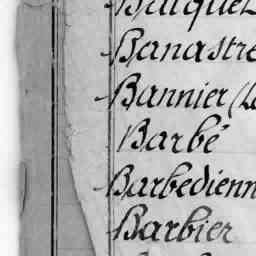 Banastre
Bannier (L
Barbé
Barbedienn
Barbier